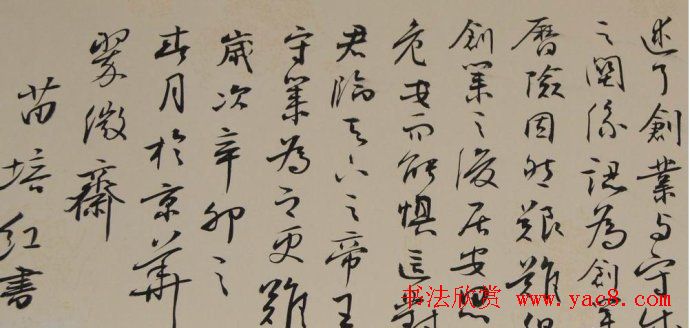 述了創業與守成
之関係認為創業
曆險因然艱難但
創業之後居安思
危安而能懼這對
君臨天下之帝王
守業為之更難
歲次辛卯之
春月於京華
翠微齋
苗培红書
书法欣赏 www.yac8.com